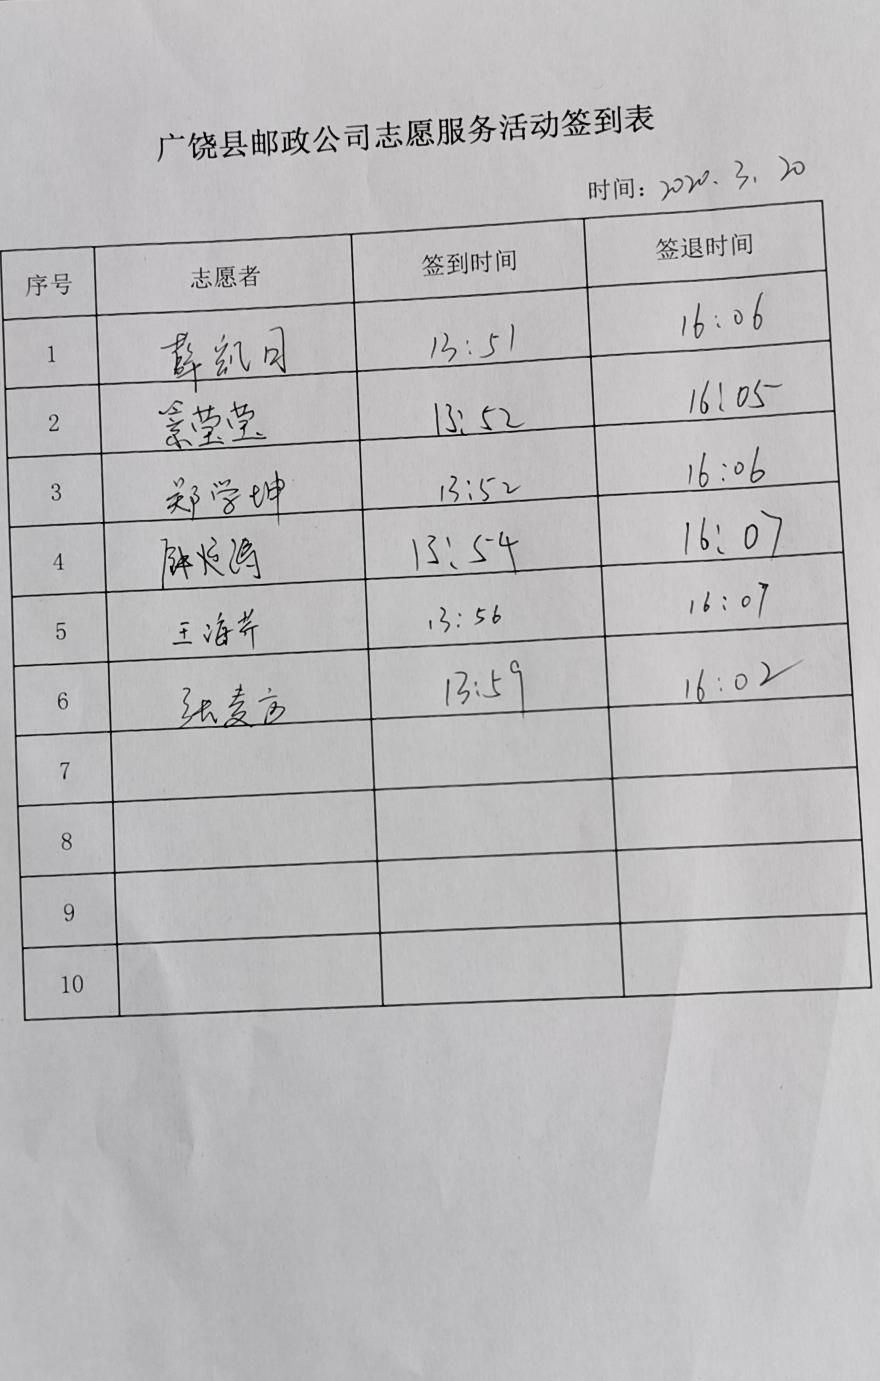 广饶县邮政公司志愿服务活动签到表
时间：2020.3.20
序号 志愿者 签到时间 签退时间
1 薛凯月 13:51 16:06
2 綦莹莹 13:52 16:05
3 郑学坤 13:52 16:06
4 13:54 16:07
5 王海芹 13:56 16:07
6 张麦方 13:59 16:02
7
8
9
10